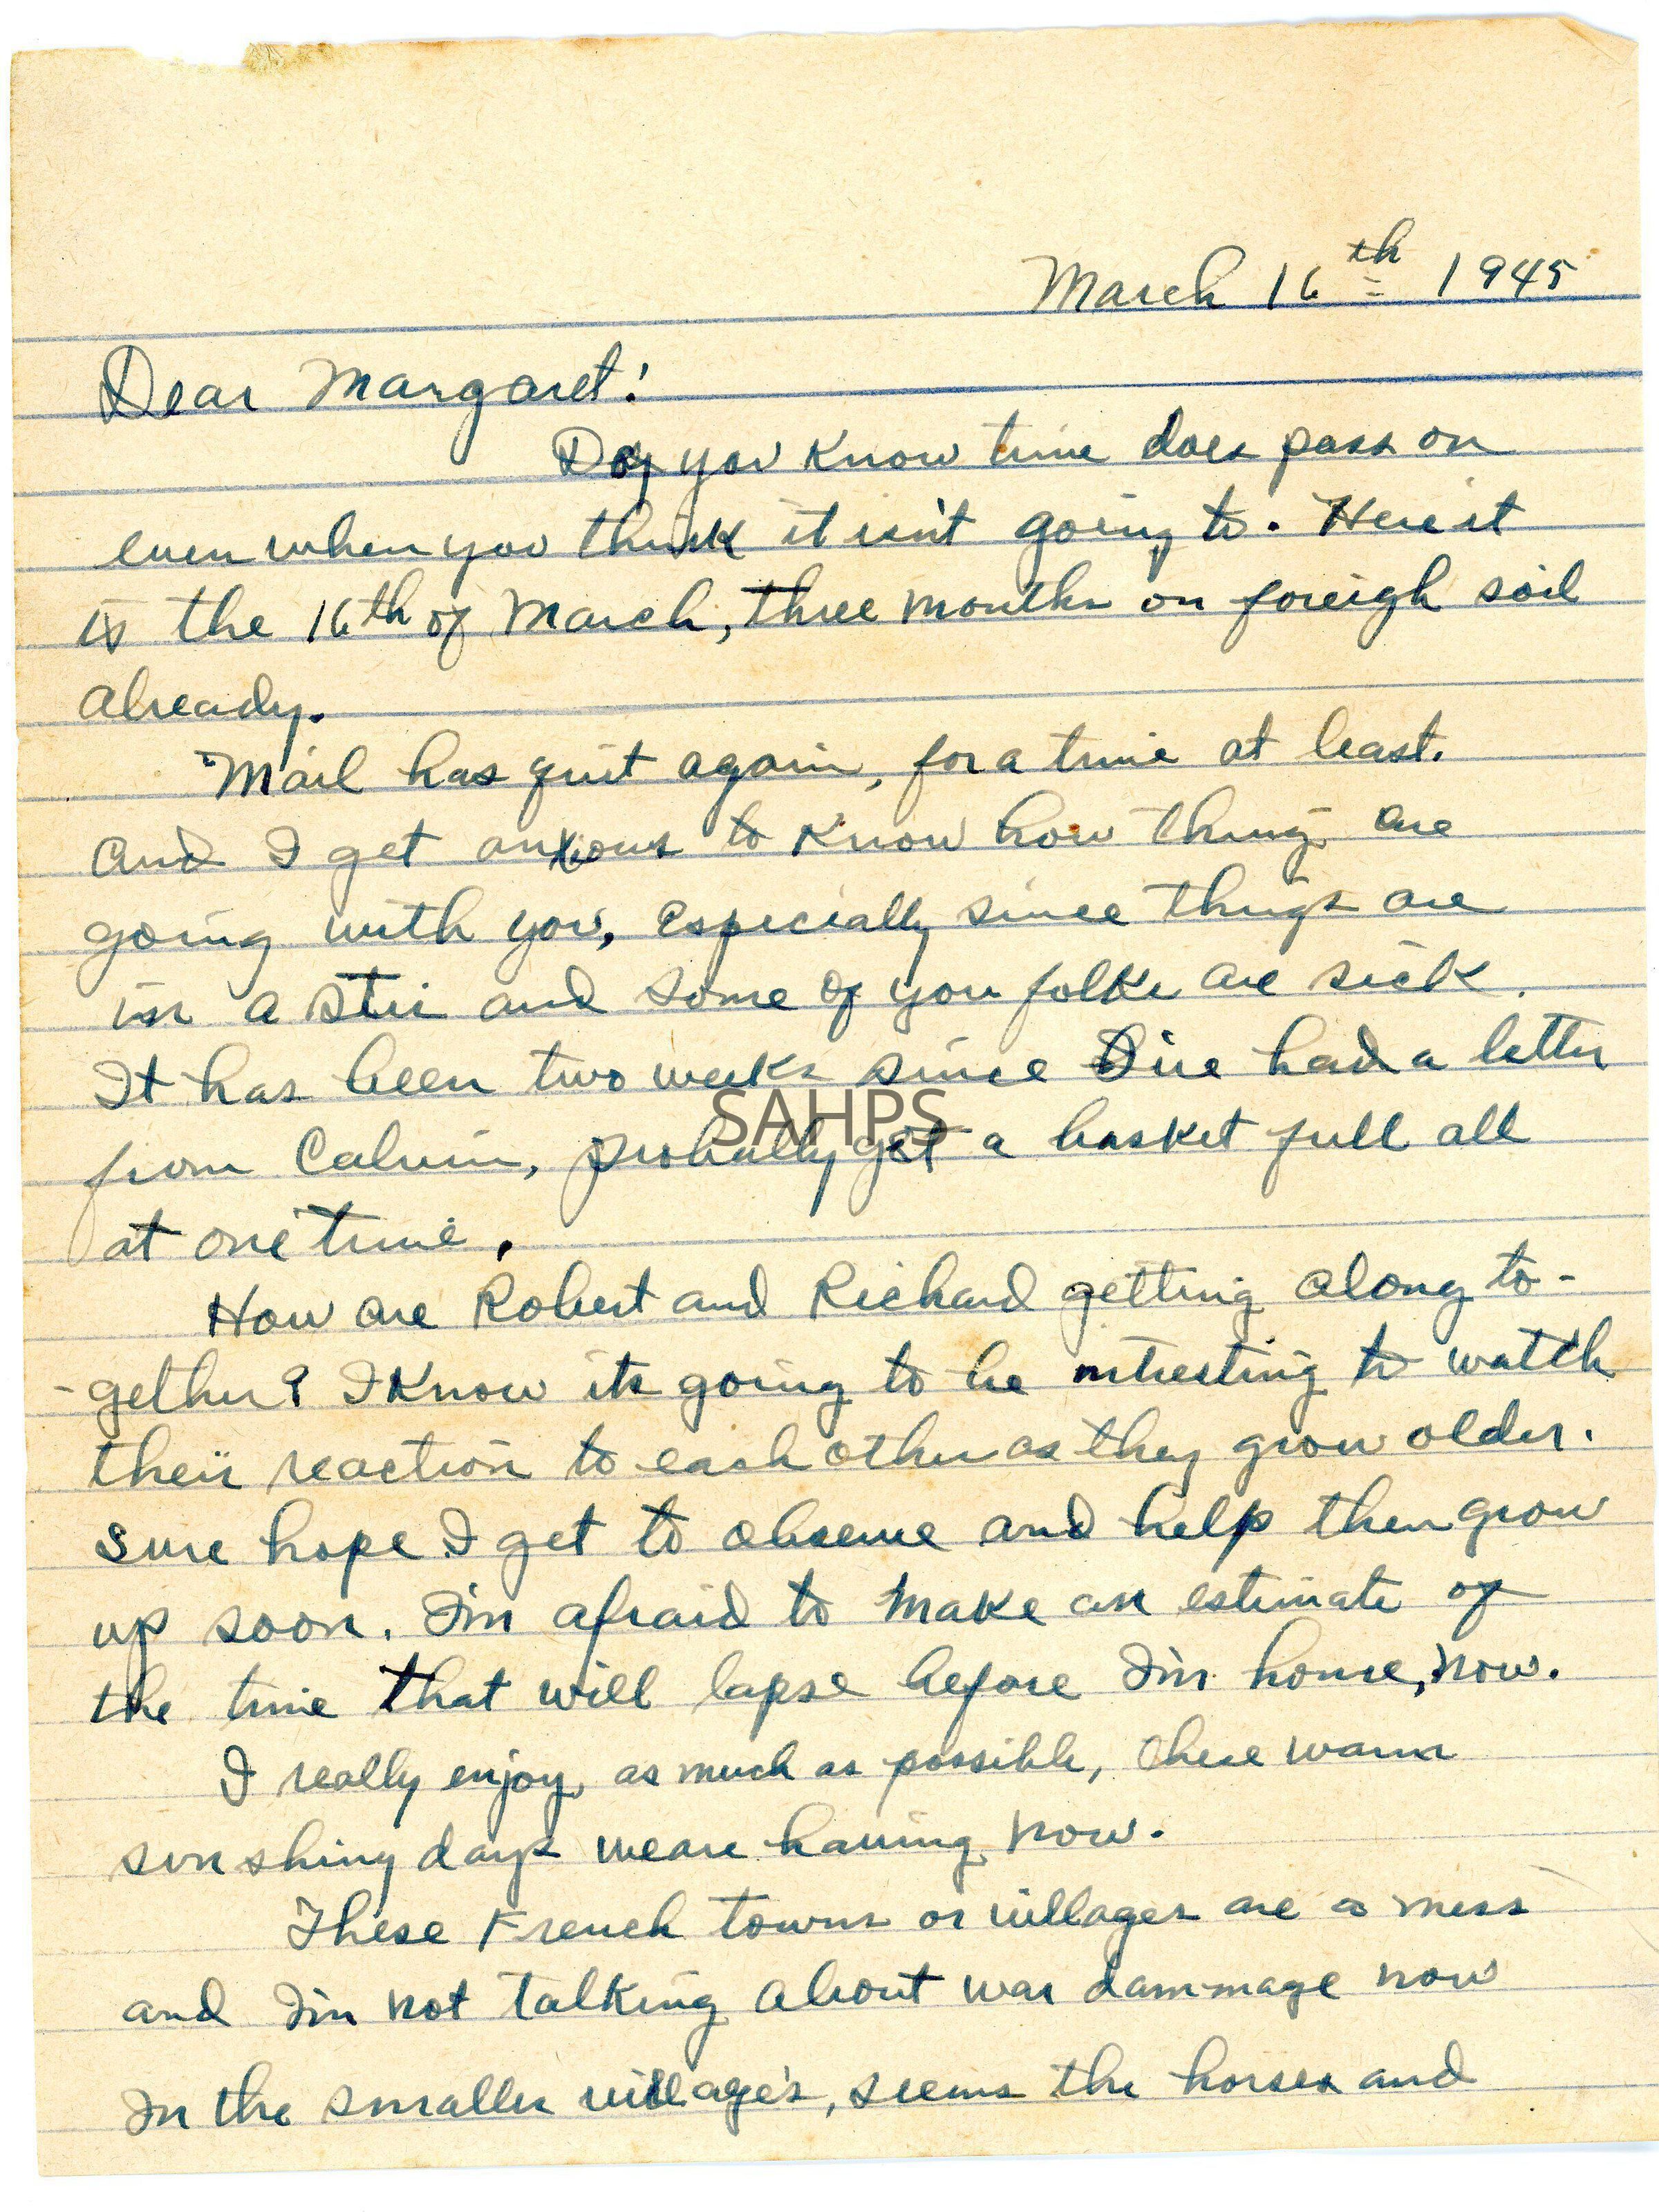 March 16th 1945
Dear Margaret!
Do you know time does pass on
even when you think it isn't going to. Here it
is the 16th of March, three months on foreigh soil
already.
Mail has quit again, for a time at least.
And I get anxious to know how things are
going with you, especially since things are
in a stir and some of you folks are sick.
It has been two weeks since I've had a letter
SAHPS
from Calvin, probally get a basket full all
at one time.
How are Robert and Richard getting along to-
-gether? I know its going to be intresting to watch
their reaction to each other as they grow older.
Sure hope I get to observe and help them grow
up soon. I'm afraid to make an estimate of
the time that will lapse before I'm home, now.
I really enjoy, as much as possible, these warm
sunshiny days we are having now.
These French towns or villages are a mess
and I'm not talking about war dammage now
In the smaller village's, seems the horses and